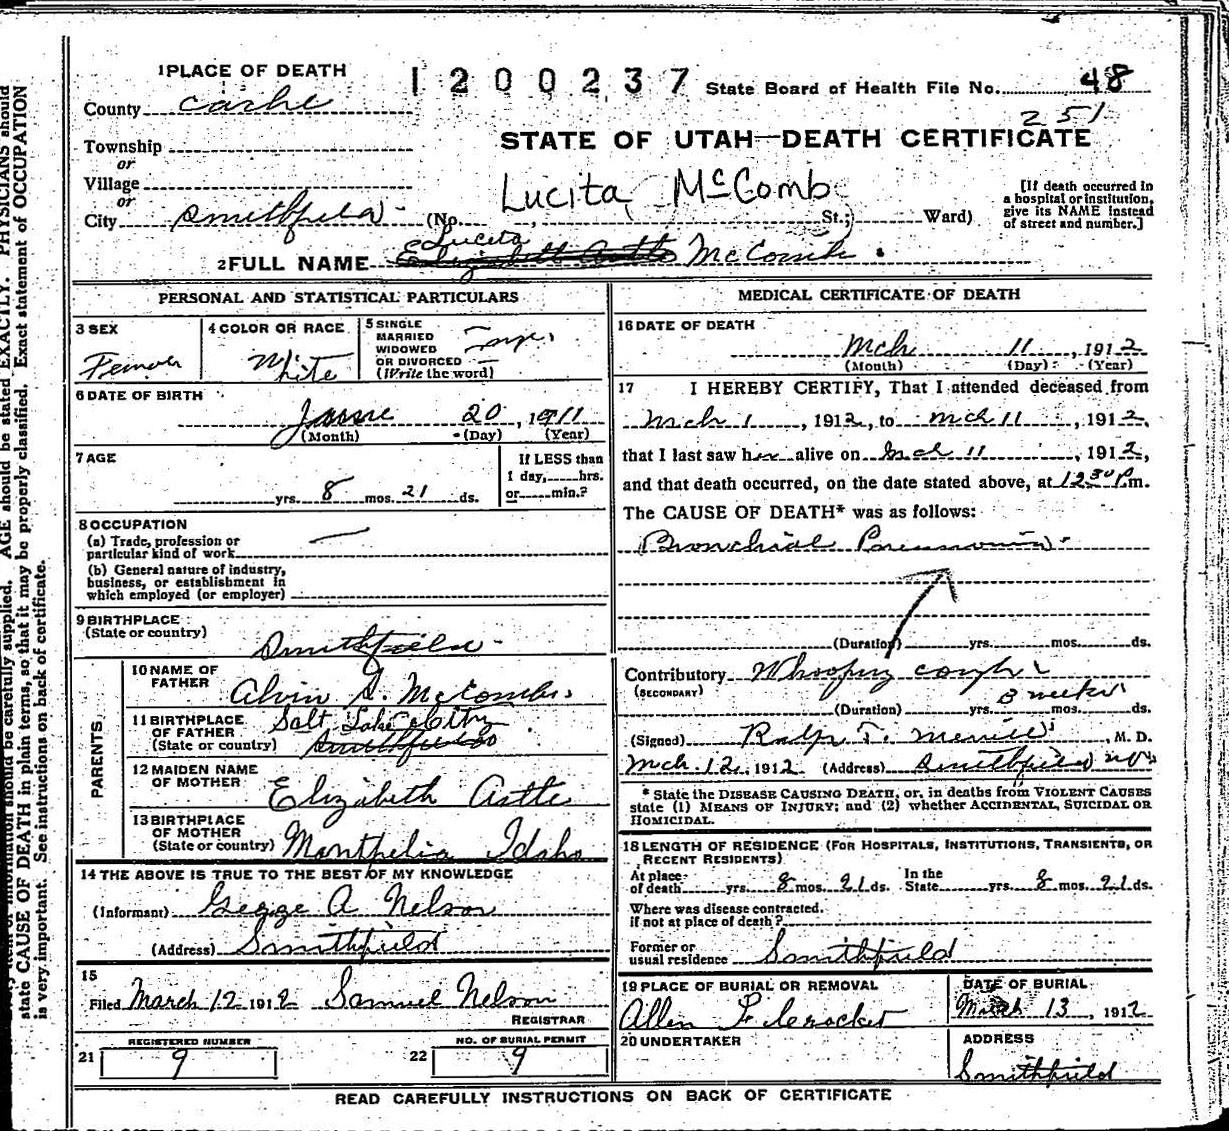 1 PLACE OF DEATH
1200237 State Board of Health File No. 48
County Cache
251
STATE OF UTAH—DEATH CERTIFICATE
Township
or
Village
or
City Smithfield (No. St.; Ward)
Lucita McComb
[If death occurred in
a hospital or institution,
give its NAME instead
of street and number.]
Lucita
2 FULL NAME Elizabeth Astle McComb
PERSONAL AND STATISTICAL PARTICULARS
3 SEX
Female
4 COLOR OR RACE
White
5 SINGLE
MARRIED
WIDOWED
OR DIVORCED
(Write the word)
6 DATE OF BIRTH
June 20, 1911
(Month) (Day) (Year)
7 AGE
yrs. 8 mos. 21 ds.
If LESS than
1 day, hrs.
or min.?
8 OCCUPATION
(a) Trade, profession or
particular kind of work
(b) General nature of industry,
business, or establishment in
which employed (or employer)
9 BIRTHPLACE
(State or country)
Smithfield
PARENTS
10 NAME OF
FATHER
Alvin S. McCombs
11 BIRTHPLACE
OF FATHER
(State or country)
Salt Lake City
Smithfield
12 MAIDEN NAME
OF MOTHER
Elizabeth Astle
13 BIRTHPLACE
OF MOTHER
(State or country)
Montpelia Idaho
14 THE ABOVE IS TRUE TO THE BEST OF MY KNOWLEDGE
(Informant) George A Nelson
(Address) Smithfield
15
Filed March 12 1912 Samuel Nelson
REGISTRAR
21 REGISTERED NUMBER
9
22 NO. OF BURIAL PERMIT
9
MEDICAL CERTIFICATE OF DEATH
16 DATE OF DEATH
Mch 11, 1912
(Month) (Day) (Year)
17 I HEREBY CERTIFY, That I attended deceased from
Mch 1, 1912, to Mch 11, 1912,
that I last saw her alive on Mch 11, 1912,
and that death occurred, on the date stated above, at 12 30 P.m.
The CAUSE OF DEATH* was as follows:
Bronchial Pneumonia
(Duration) yrs. mos. ds.
Contributory Whooping cough
(SECONDARY)
3 weeks
(Duration) yrs. mos. ds.
(Signed) Ralph T. Merrill, M. D.
Mch. 12, 1912 (Address) Smithfield
* State the DISEASE CAUSING DEATH, or, in deaths from VIOLENT CAUSES
state (1) MEANS OF INJURY; and (2) whether ACCIDENTAL, SUICIDAL OR
HOMICIDAL.
18 LENGTH OF RESIDENCE (FOR HOSPITALS, INSTITUTIONS, TRANSIENTS, OR
RECENT RESIDENTS)
At place
of death yrs. 8 mos. 21 ds. In the
State yrs. 8 mos. 21 ds.
Where was disease contracted,
if not at place of death?
Former or
usual residence Smithfield
19 PLACE OF BURIAL OR REMOVAL
Allen F Crocket
DATE OF BURIAL
March 13, 1912
20 UNDERTAKER
ADDRESS
Smithfield
READ CAREFULLY INSTRUCTIONS ON BACK OF CERTIFICATE
information should be carefully supplied. AGE should be stated EXACTLY. PHYSICIANS should
state CAUSE OF DEATH in plain terms, so that it may be properly classified. Exact statement of OCCUPATION
is very important. See instructions on back of certificate.